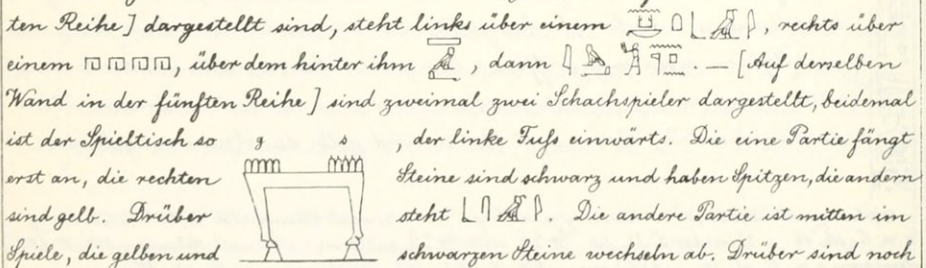 ten Reihe] dargestellt sind, steht links über einem , rechts über
einem , über dem hinter ihm , dann . — [Auf derselben
Wand in der fünften Reihe] sind zweimal zwei Schachspieler dargestellt, beidemal
ist der Spieltisch so g s , der linke Fuſs einwärts. Die eine Partie fängt
erst an, die rechten Steine sind schwarz und haben Spitzen, die andern
sind gelb. Drüber steht . Die andere Partie ist mitten im
Spiele, die gelben und schwarzen Steine wechseln ab. Drüber sind noch